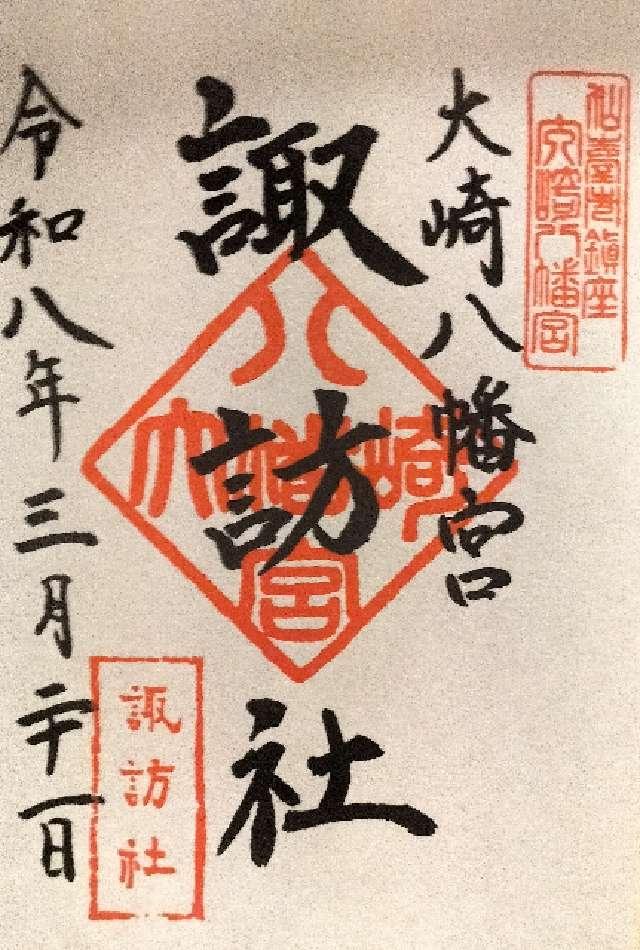 仙臺鎮座
大崎八幡宮
大崎八幡宮
諏訪社
大崎八幡宮
令和八年三月二十一日
諏訪社